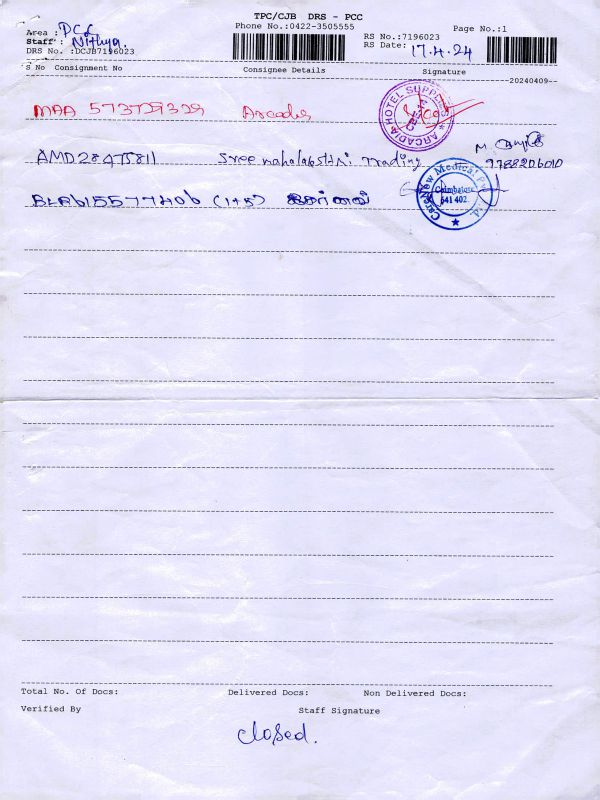 TPC/CJB DRS - PCC
Phone No.:0422-3505555
Page No.:1
Area : PCC
RS No.:7196023
Staff : Nithya.
RS Date: 17.4.24
DRS No. :DCJB7196023
S No Consignment No Consignee Details Signature
20240409
Arcadia
ARCADIA HOTEL SUPPLIES
AMD28475811 Sree mahalakshmi Trading 9788206010
CareNow Medical Pvt. Ltd.
Coimbatore
641 402.
(1+5)
Total No. Of Docs: Delivered Docs: Non Delivered Docs:
Verified By Staff Signature
closed.